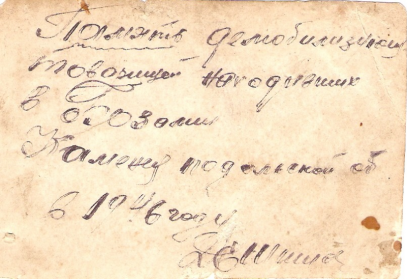 Память демобилизо
товарищей находивших
в обозами
Каменц подольской об
в 1946 году